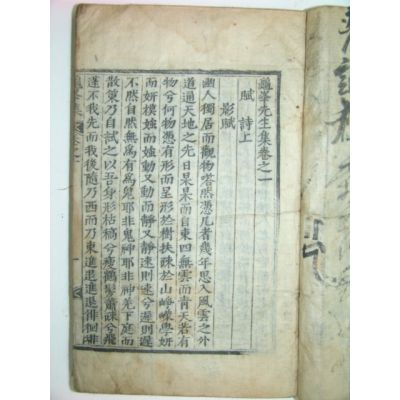 龜峯先生集卷之一
賦 詩上
影賦
幽人獨居而觀物嗒然憑几者幾年思入風雲之外
道通天地之先日杲杲而自東四無雲而青天若有
物兮何物憑有形而呈形於樹扶疎於山崢嶸學妍
而妍模媸而媸動又動而靜又靜速則速兮遲則遲
不然自然而然有鬼耶非鬼神耶非神羌下庭而
散策乃自試之以吾身形枯槁兮瘦鶴髮蕭疎兮飛
蓬不我先而我後隨乃西而乃東進進退退徘徊徘
龜峯集